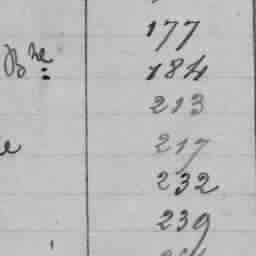 177
Bne 184
213
e 217
232
239